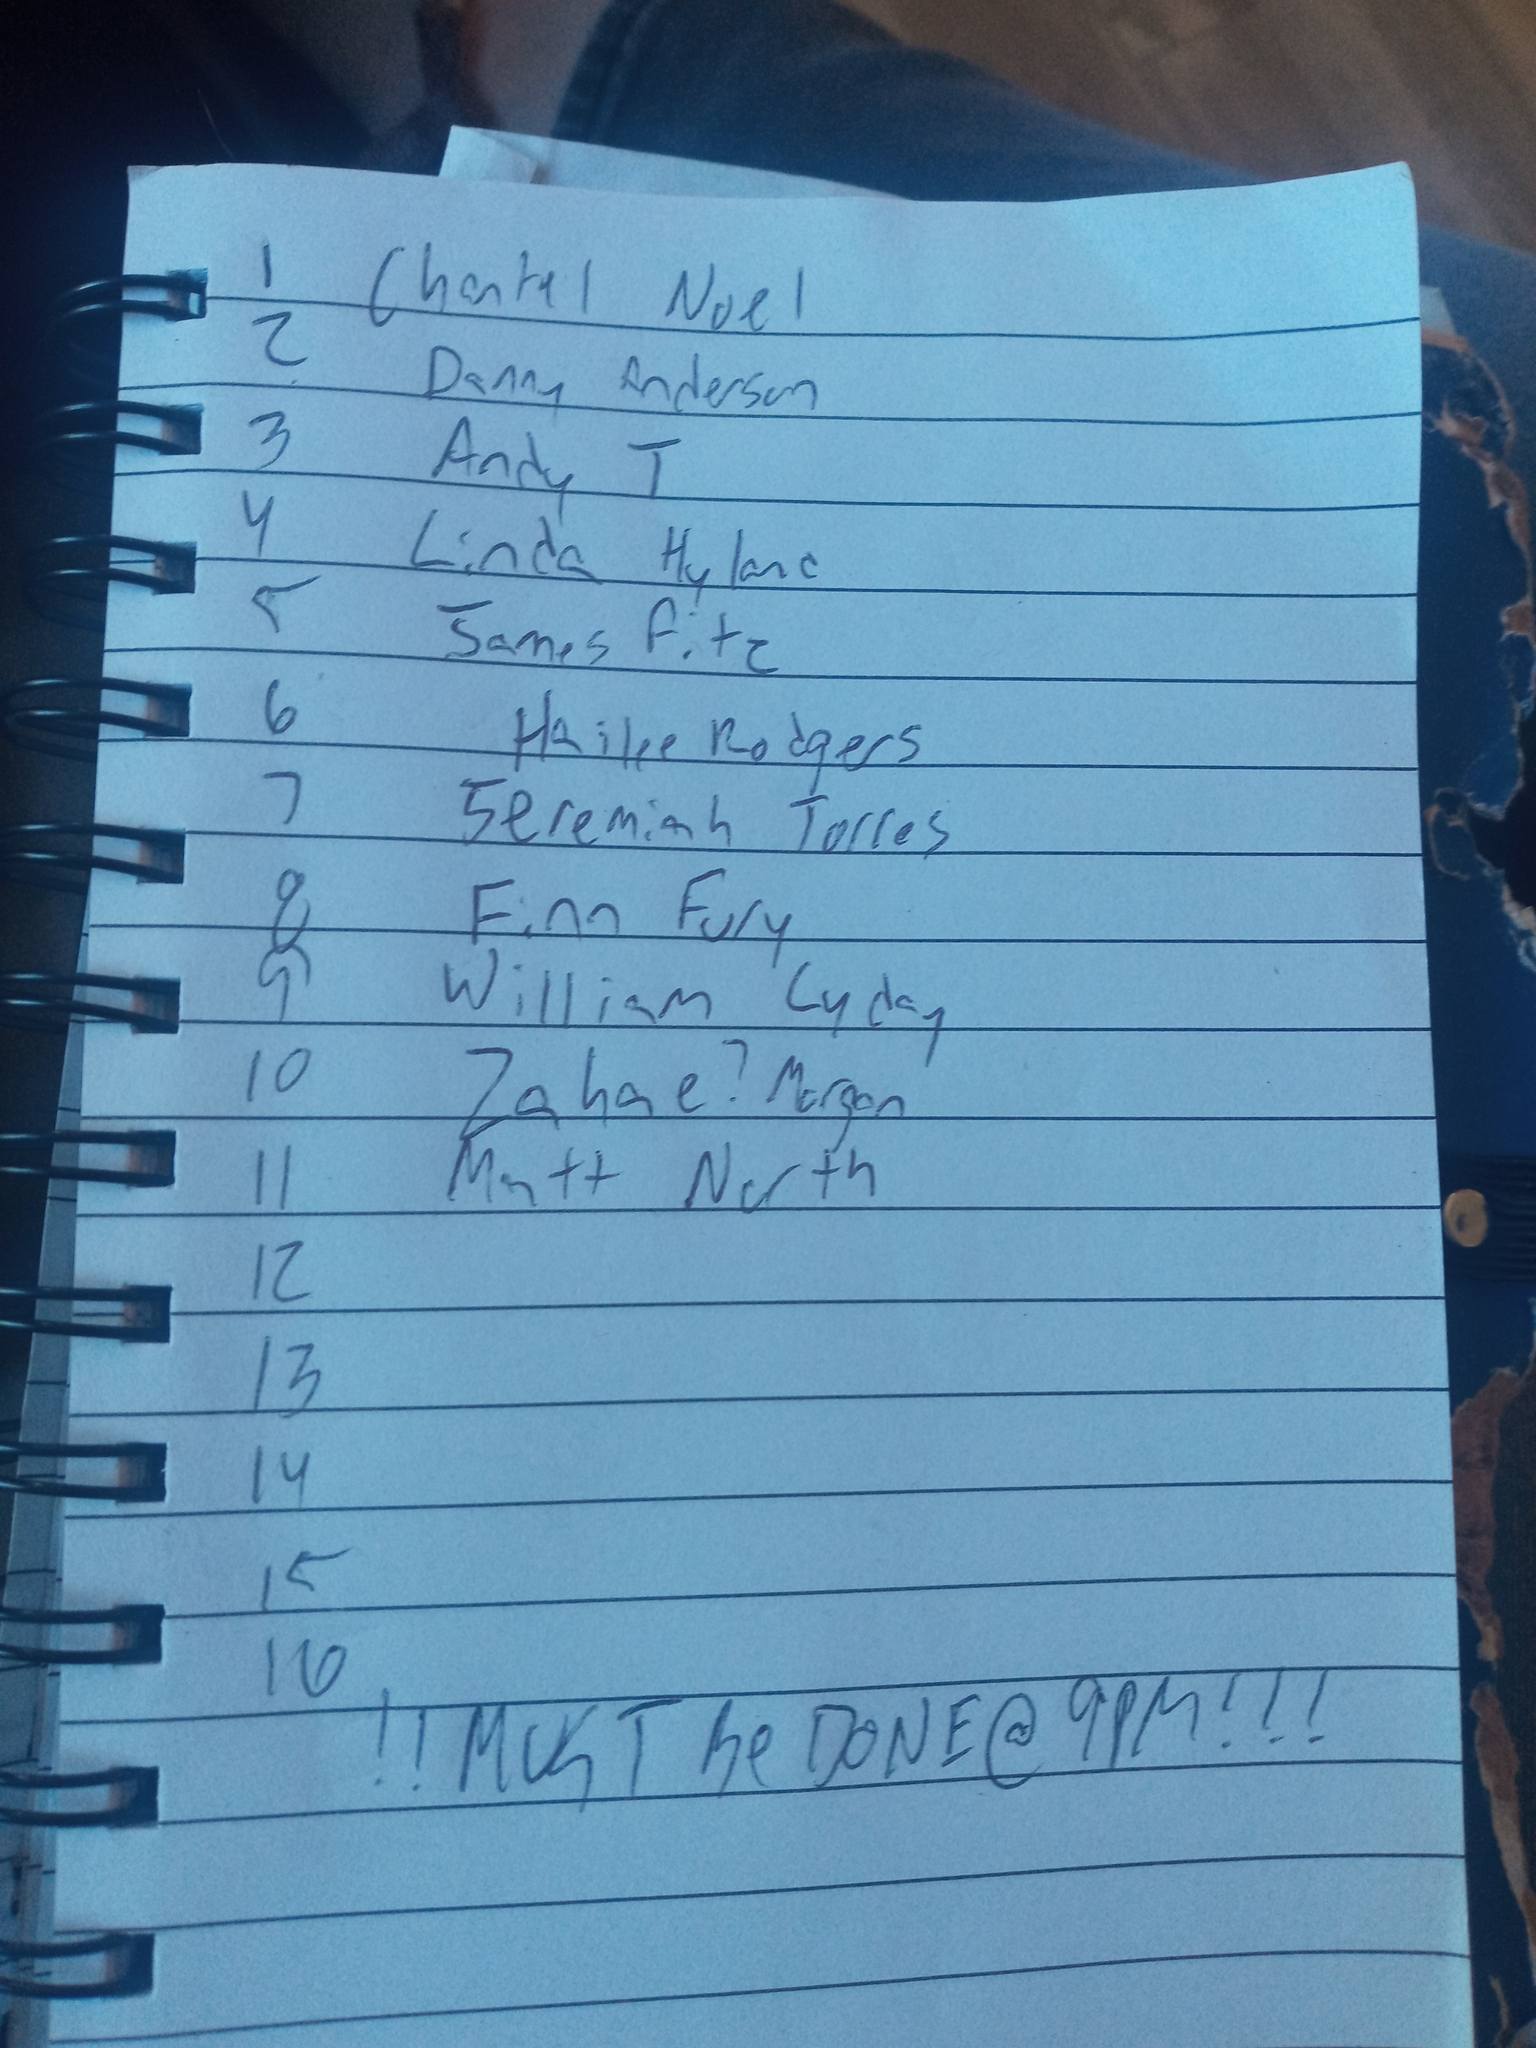 1 Chantel Noel
2 Danny Anderson
3 Andy T
4 Linda Hyland
5 James Fitz
6 Hailee Rodgers
7 Jeremiah Torres
8 Finn Fury
9 William Lyday
10 Zahae? Morgan
11 Matt North
12
13
14
15
16
!! MUST Be DONE @ 9PM!!!